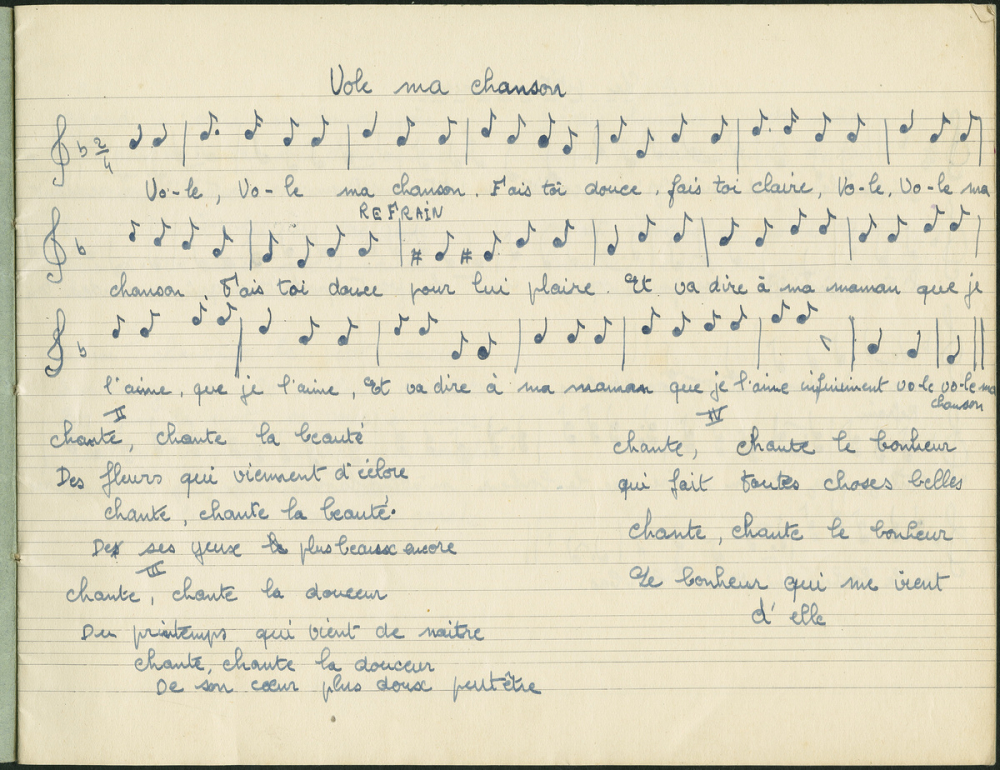 Vole ma chanson
2/4
Vo-le, Vo-le ma chanson. Fais toi douce, fais toi claire, Vo-le, Vo-le ma
REFRAIN
chanson, Fais toi douce pour lui plaire. Et va dire à ma maman que je
l'aime, que je l'aime, Et va dire à ma maman que je l'aime infiniment vo-le vo-le ma
chanson
II
chante, chante la beauté
Des fleurs qui viennent d'éclore
chante, chante la beauté.
De ses yeux plus beaux encore
III
chante, chante la douceur
Du printemps qui vient de naitre
chante, chante la douceur
De son cœur plus doux peut être
IV
chante, chante le bonheur
qui fait toutes choses belles
chante, chante le bonheur
Le bonheur qui me vient
d'elle